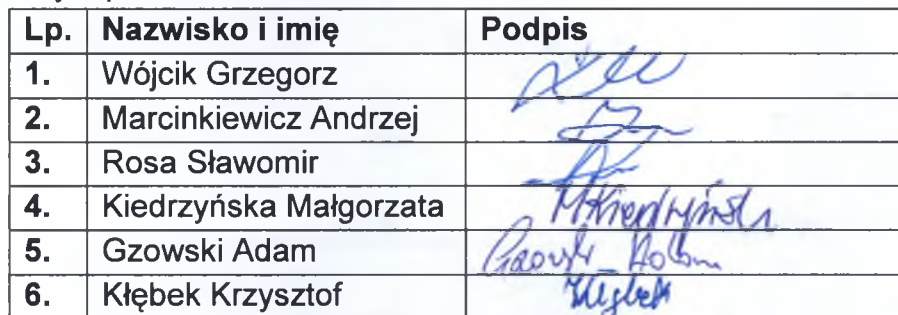 Lp. Nazwisko i imię Podpis
1. Wójcik Grzegorz
2. Marcinkiewicz Andrzej
3. Rosa Sławomir
4. Kiedrzyńska Małgorzata MKiedrzyńska
5. Gzowski Adam Gzowski Adam
6. Kłębek Krzysztof Kłębek